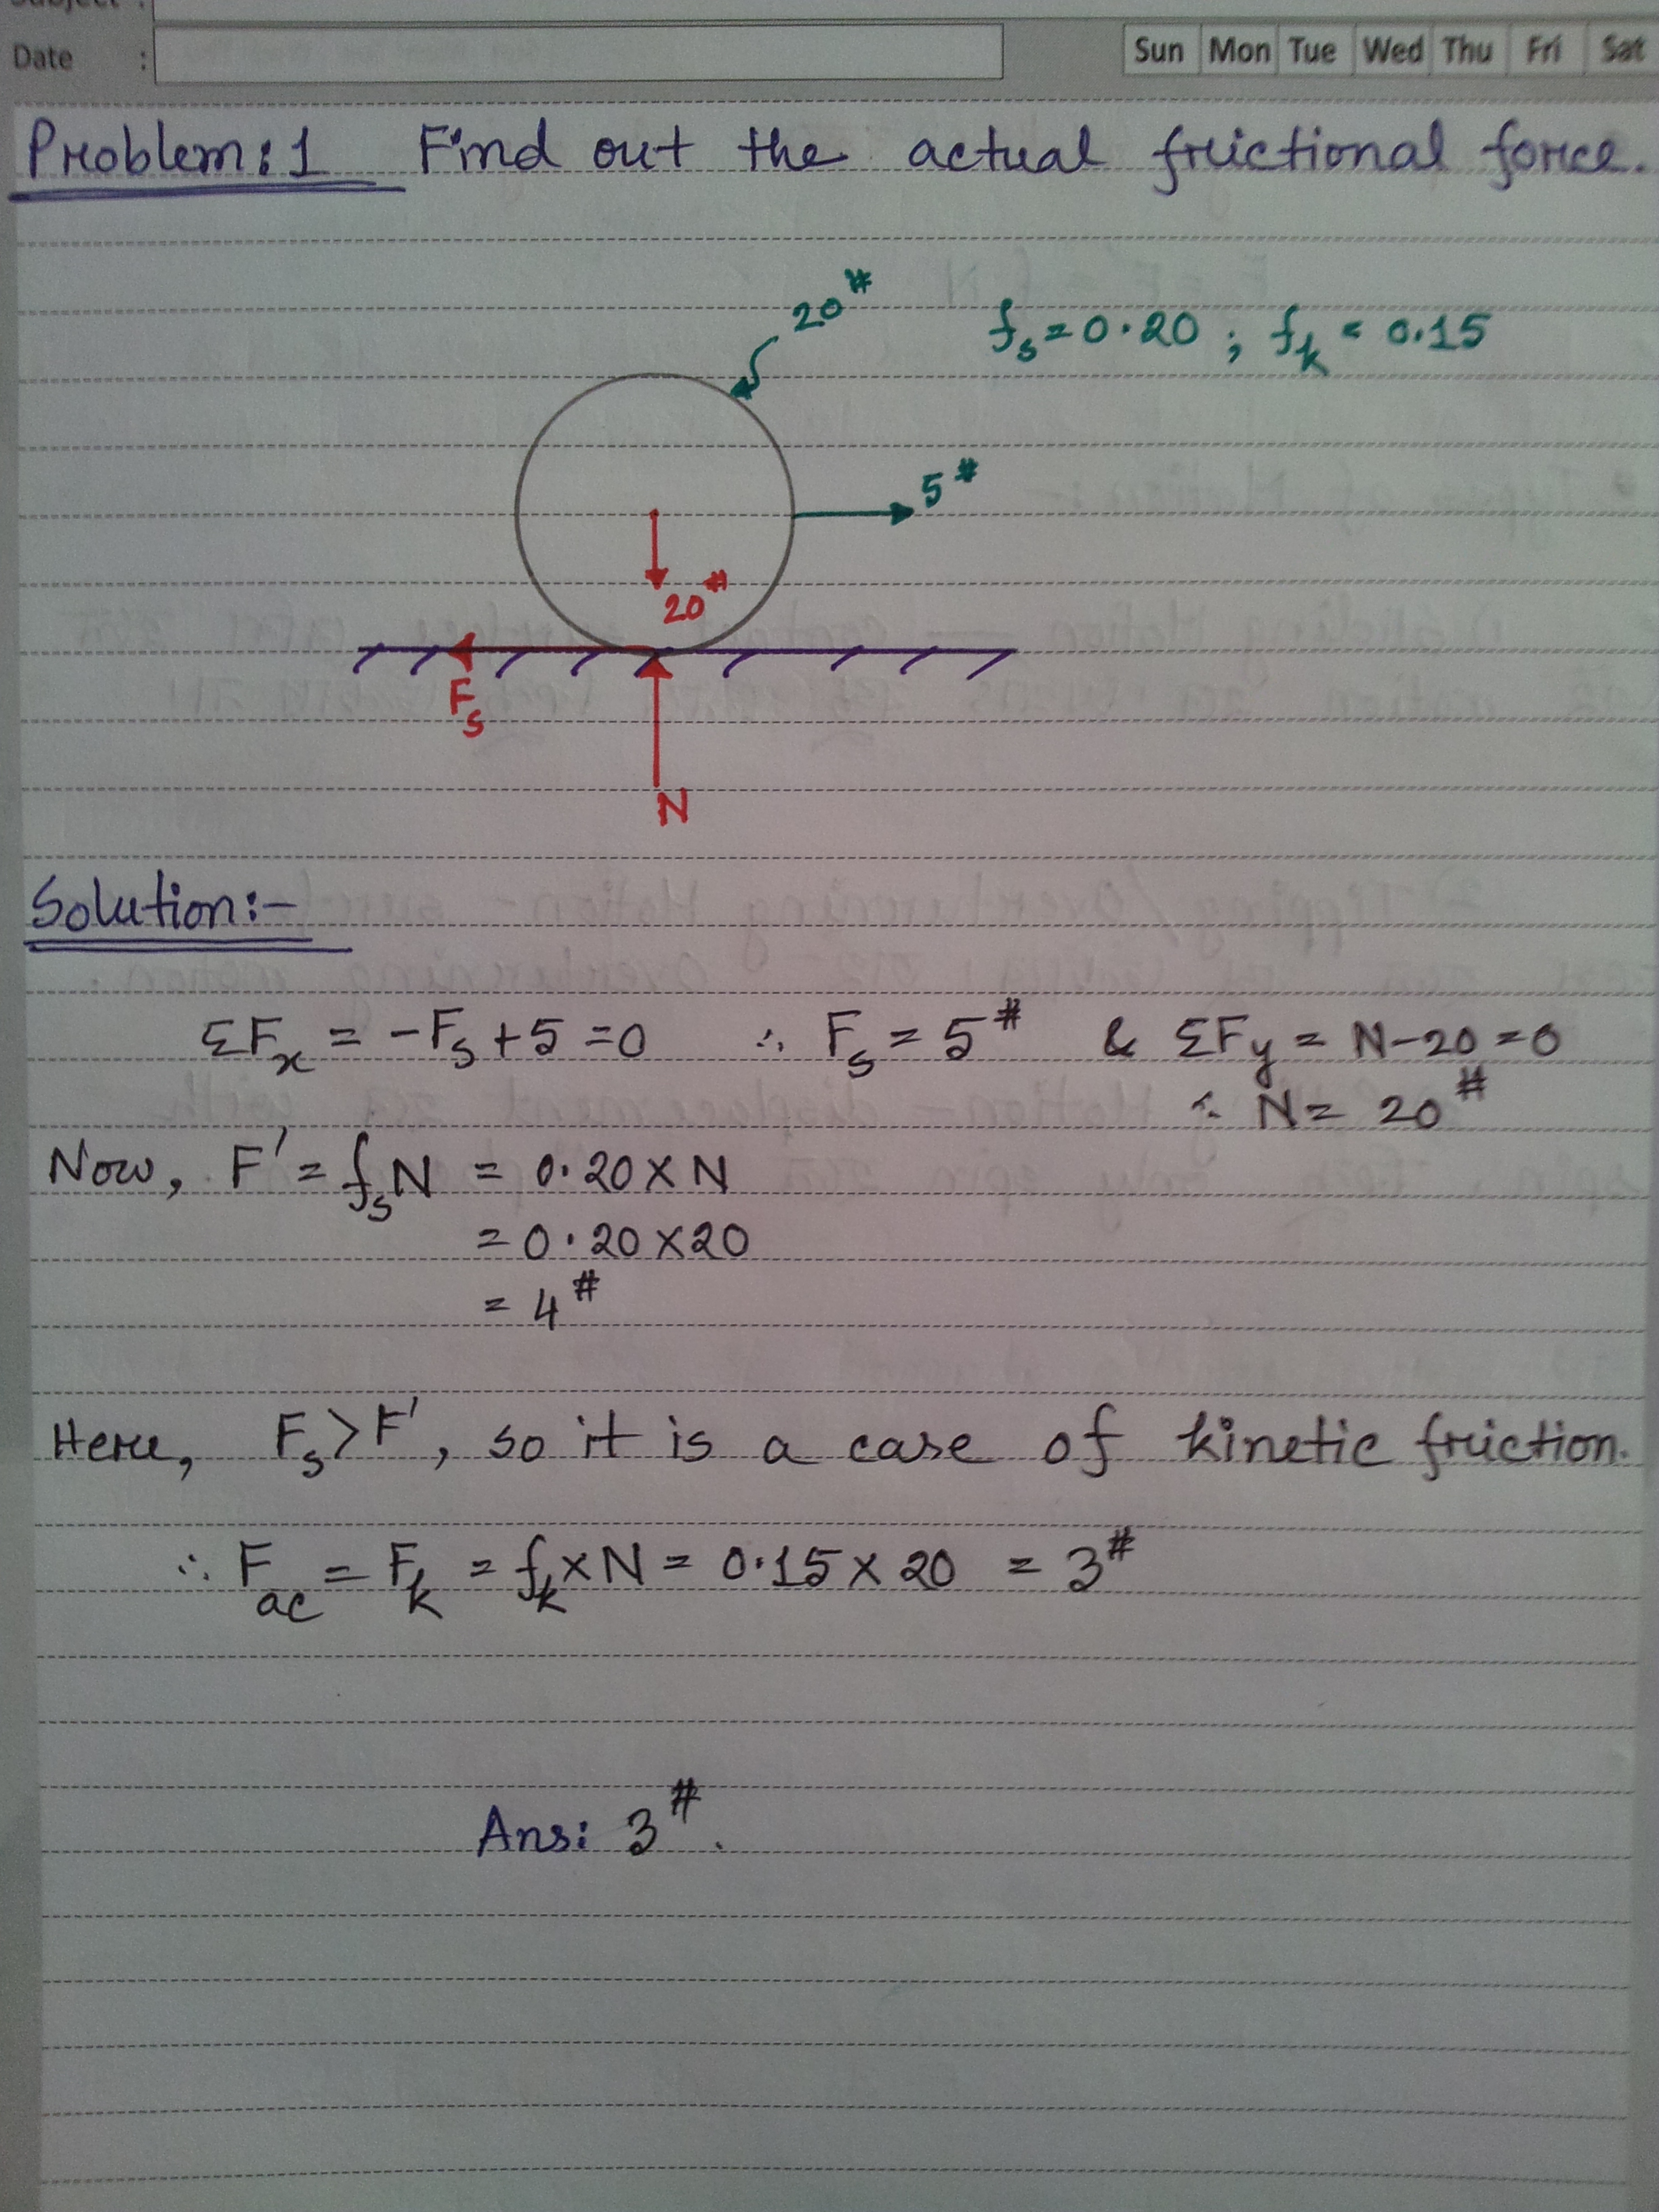 Subject :
Date :
Sun Mon Tue Wed Thu Fri Sat
Problem:1 Find out the actual frictional force.
20#
fs = 0.20 ; fk = 0.15
5#
20#
Fs
N
Solution:-
ΣFx = -Fs + 5 = 0 ∴ Fs = 5# & ΣFy = N-20 = 0
∴ N = 20#
Now, F' = fsN = 0.20 × N
= 0.20 × 20
= 4#
Here, Fs > F', so it is a case of kinetic friction.
∴ Fac = Fk = fk × N = 0.15 × 20 = 3#
Ans: 3#.